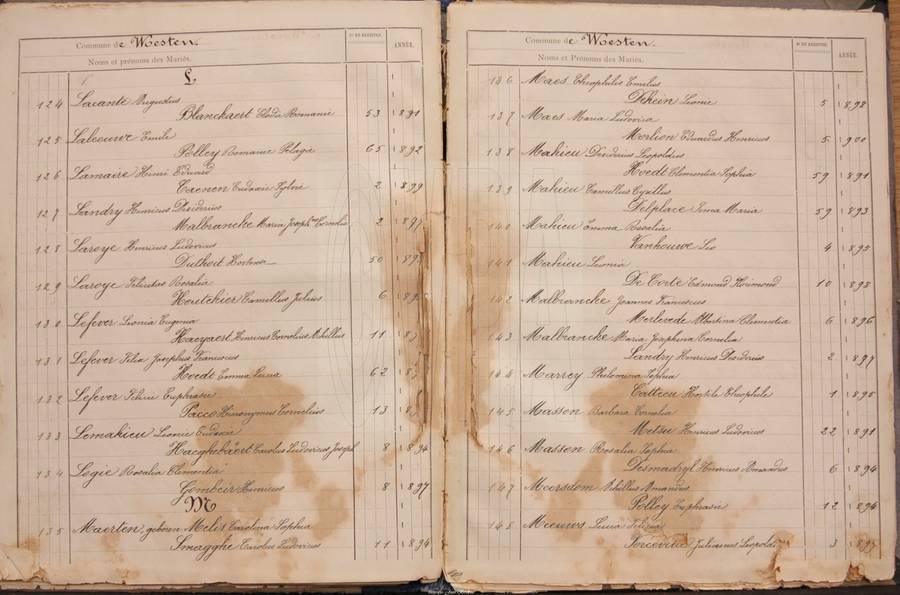 Commune de Woesten.
Noms et prénoms des Mariés.
N° DU REGISTRE.
ANNÉE.
L.
124 Lacante Augustus
Blanckaert Elodia Romanie 53 1891
125 Laleeuwe Emile
Pelley Romanie Pelagie 65 1892
126 Lamaire Henri Eduard
Taenen Eudoxie Sylvie 2 1899
127 Landry Henricus Desiderius
Malbrancke Maria Joseph Cornelia 2 1897
128 Laroye Henricus Ludovicus
Duthoit Hortense 50 189
129 Laroye Felicitas Rosalia
Houtekier Camillus Julius 6 189
130 Lefever Leonia Eugenia
Haeyaert Henricus Cornelius Achillius 11 18
131 Lefever Felix Josephus Franciscus
Hoedt Emma Lucia 62 18
132 Lefever Felicie Euphrasie
Pacco Hieronymus Cornelius 13 18
133 Lemahieu Leonie Eudoxie
Haeghebaert Carolus Ludovicus Joseph 8 1894
134 Logie Rosalia Clementia
Gombeir Henricus 8 1897
M
135 Maerten, geboren Melis Carolina Sophia
Smagghe Carolus Ludovicus 11 1894
Commune de Woesten.
Noms et Prénoms des Mariés.
N° DU REGISTRE.
ANNÉE.
136 Maes Theophilus Emilius
Leonie 5 1898
137 Maes Maria Ludovica
Merlien Eduardus Henricus 5 1900
138 Mahieu Desiderius Leopoldus
Hoedt Clementia Sophia 59 1891
139 Mahieu Camillus Cyrillus
Delplace Irma Maria 59 1893
140 Mahieu Emma Rosalia
Vanhouwe Leo 4 1895
141 Mahieu Leonia
De Corte Edmond Florimond 10 1898
142 Malbrancke Joannes Franciscus
Merlevede Albertina Clementia 6 1896
143 Malbrancke Maria Josephina Cornelia
Landry Henricus Desiderius 2 1897
144 Marrey Philomena Sophia
Catteeu Theophile 1 1895
145 Massen Barbara Cornelia
Henricus Ludovicus 22 1891
146 Massen Rosalia Sophia
Desmadryl Henricus Amandus 6 1894
147 Meersdom Achillus Amandus
Pelley Euphrasie 12 1896
148 Meeuws Lucia
Julianus Leopold 3 1897